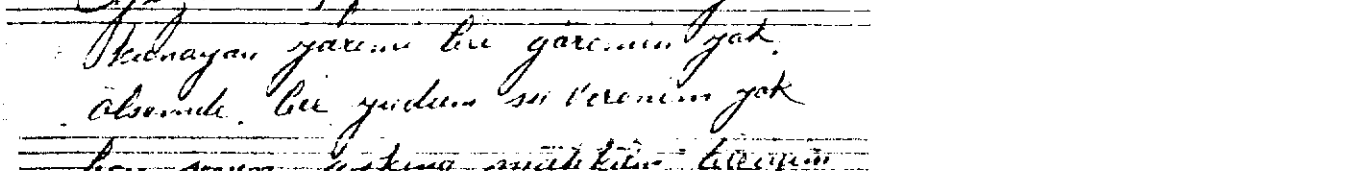 Kanayan yaremi bir görenim yok.
ölsemde. bir yudum su verenim yok
ben senin aşkına mahkûm